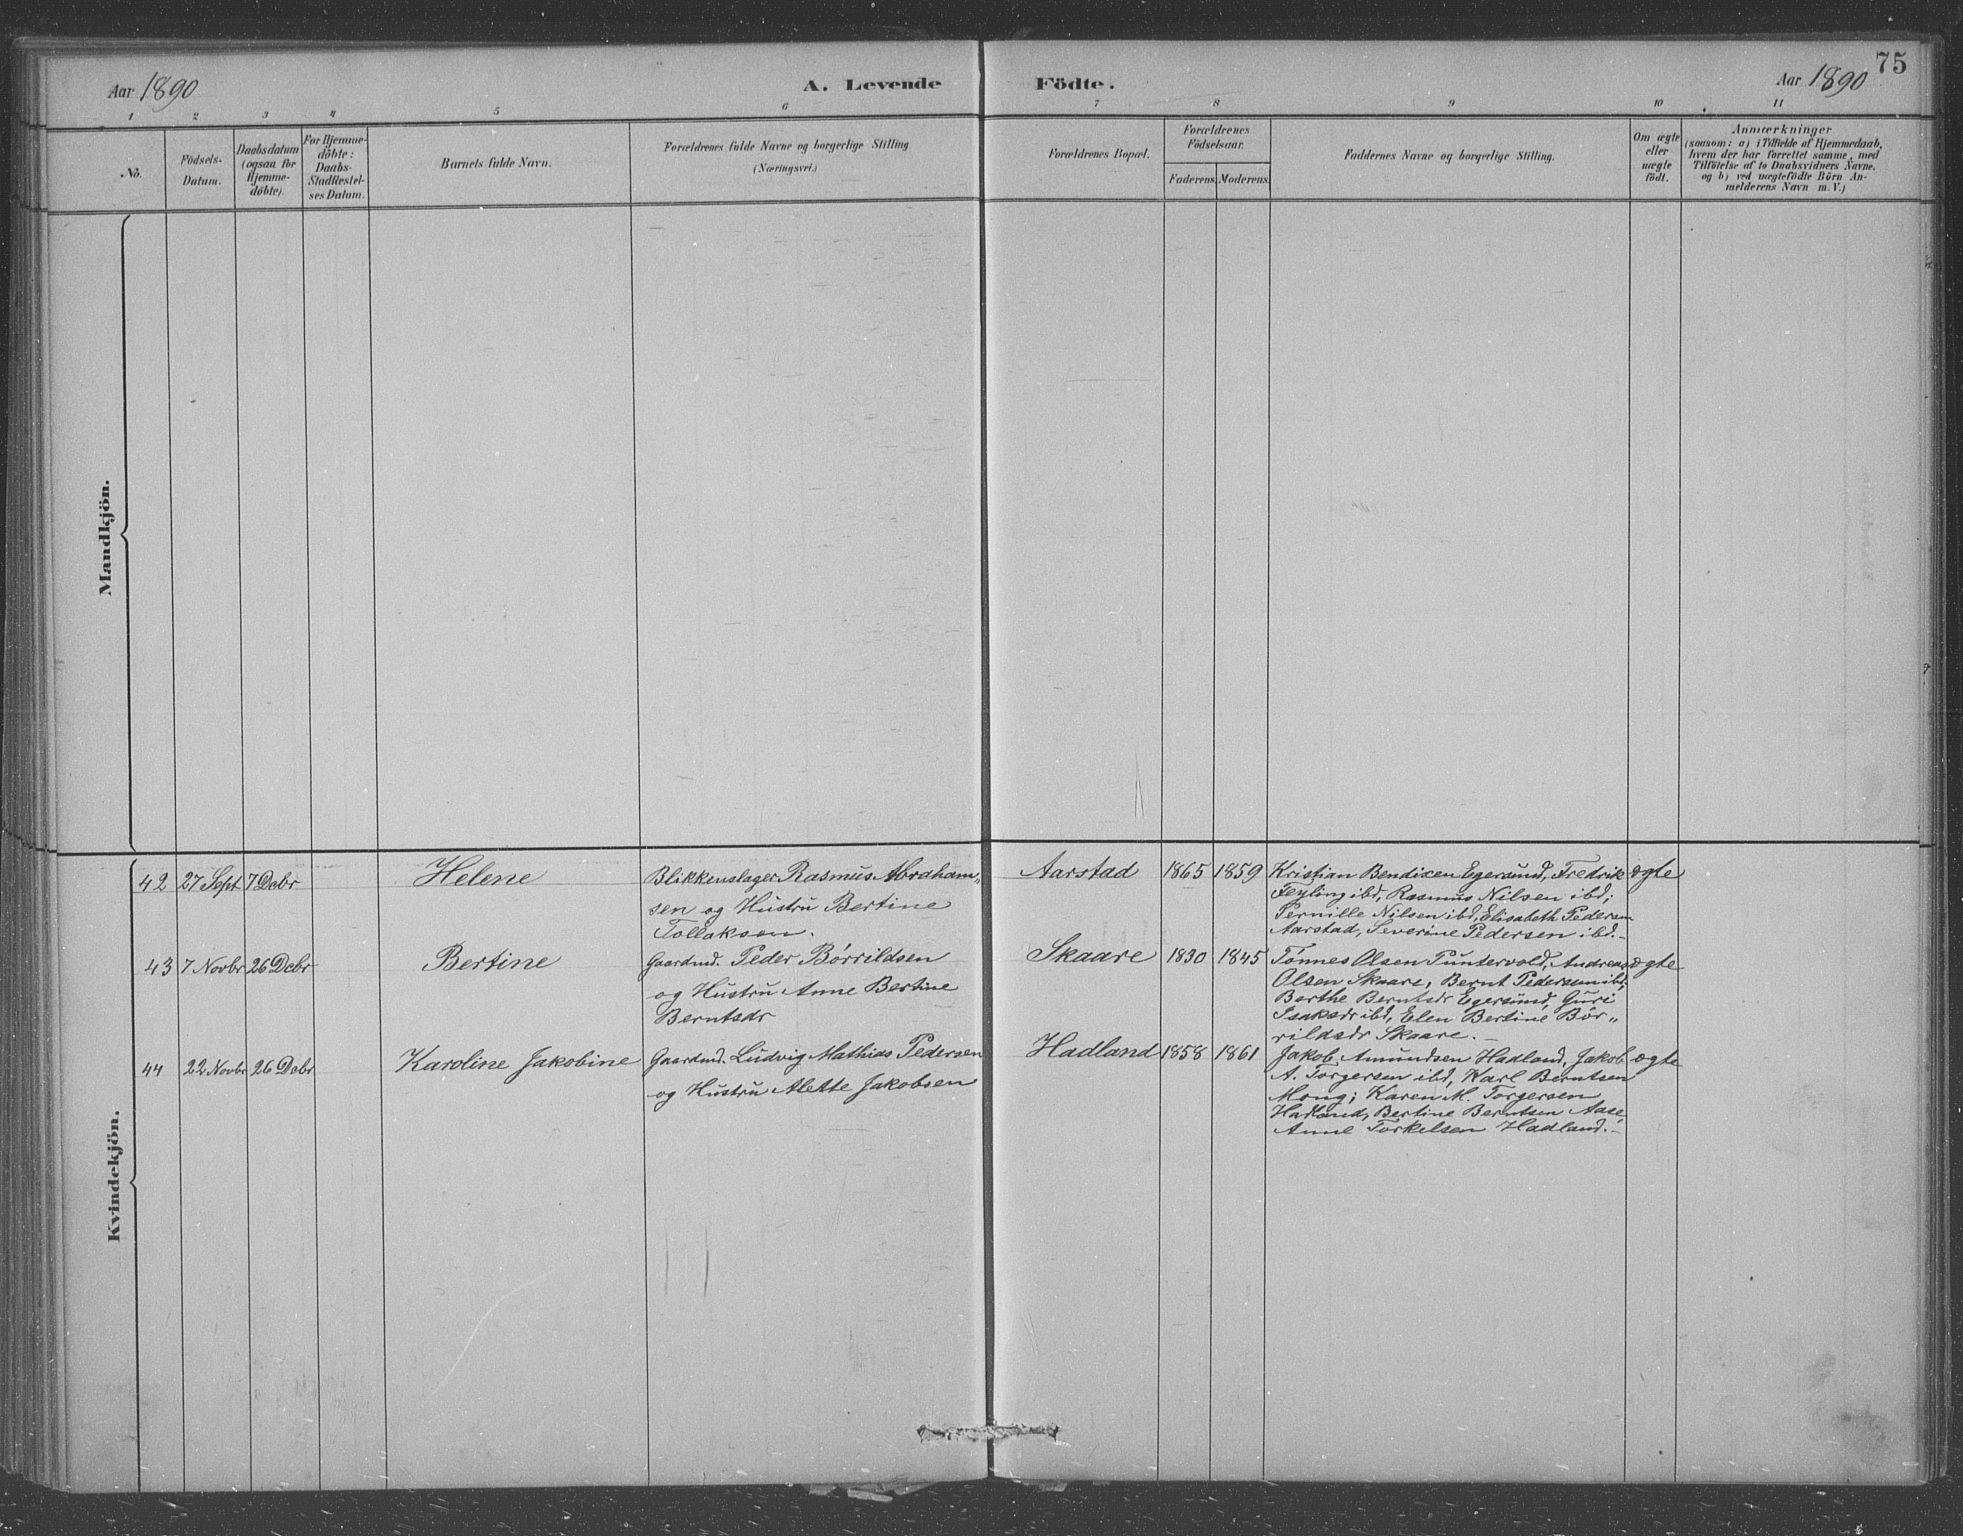 75
Aar 1890
A. Levende Födte.
Aar 1890
1 2 3 4 5 6 7 8 9 10 11
No.
Födsels-
Datum.
Daabsdatum
(ogsaa for
Hjemme-
döbte).
For Hjemme-
döbte:
Daabs-
Stadfæstel-
ses Datum.
Barnets fulde Navn.
Forældrenes fulde Navne og borgerlige Stilling
(Næringsvei.)
Forældrenes Bopæl.
Forældrenes
Födselsaar.
Faderens. Moderens.
Faddernes Navne og borgerlige Stilling.
Om ægte
eller
uægte
födt.
Anmærkninger
(saasom: a) i Tilfælde af Hjemmedaab,
hvem der har forrettet samme, med
Tilföielse af to Daabsvidners Navne,
og b) ved uægtefödte Börn An-
melderens Navn m. V.)
Mandkjön.
Kvindekjön.
42 27 Sept 7 Decbr Helene
Blikkenslager Rasmus Abraham„
sen og Hustru Bertine
Tollaksen.
Aarstad 1865 1859
Kristian Bendixen Egersund, Fredrik
Feyling ibd, Rasmus Nilsen ibd;
Pernille Nilsen ibd, Elisabeth Pedersen
Aarstad, Severine Pedersen ibd.
ægte
43 7 Novbr 26 Dcbr Bertine
Gaardmd. Peder Børrildsen
og Hustru Anne Bertine
Berntsdr
Skaare 1830 1845
Tønnes Olsen Puntervold, Andreas
Olsen Skaare, Bernt Pedersen ibd;
Berthe Berntsdr Egersund, Guri
Isaksdr ibd, Elen Bertine Bør„
rildsdr Skaare.
ægte
44 22 Novbr 26 Dcbr Karoline Jakobine
Gaardmd. Ludvig Mathias Pedersen
og Hustru Alette Jakobsen
Hadland 1858 1861
Jakob Amundsen Hadland, Jakob
A. Torgersen ibd, Karl Berntsen
Mong; Karen M. Torgersen
Hadland, Bertine Berntsen Aase,
Anne Torkelsen Hadland.
ægte